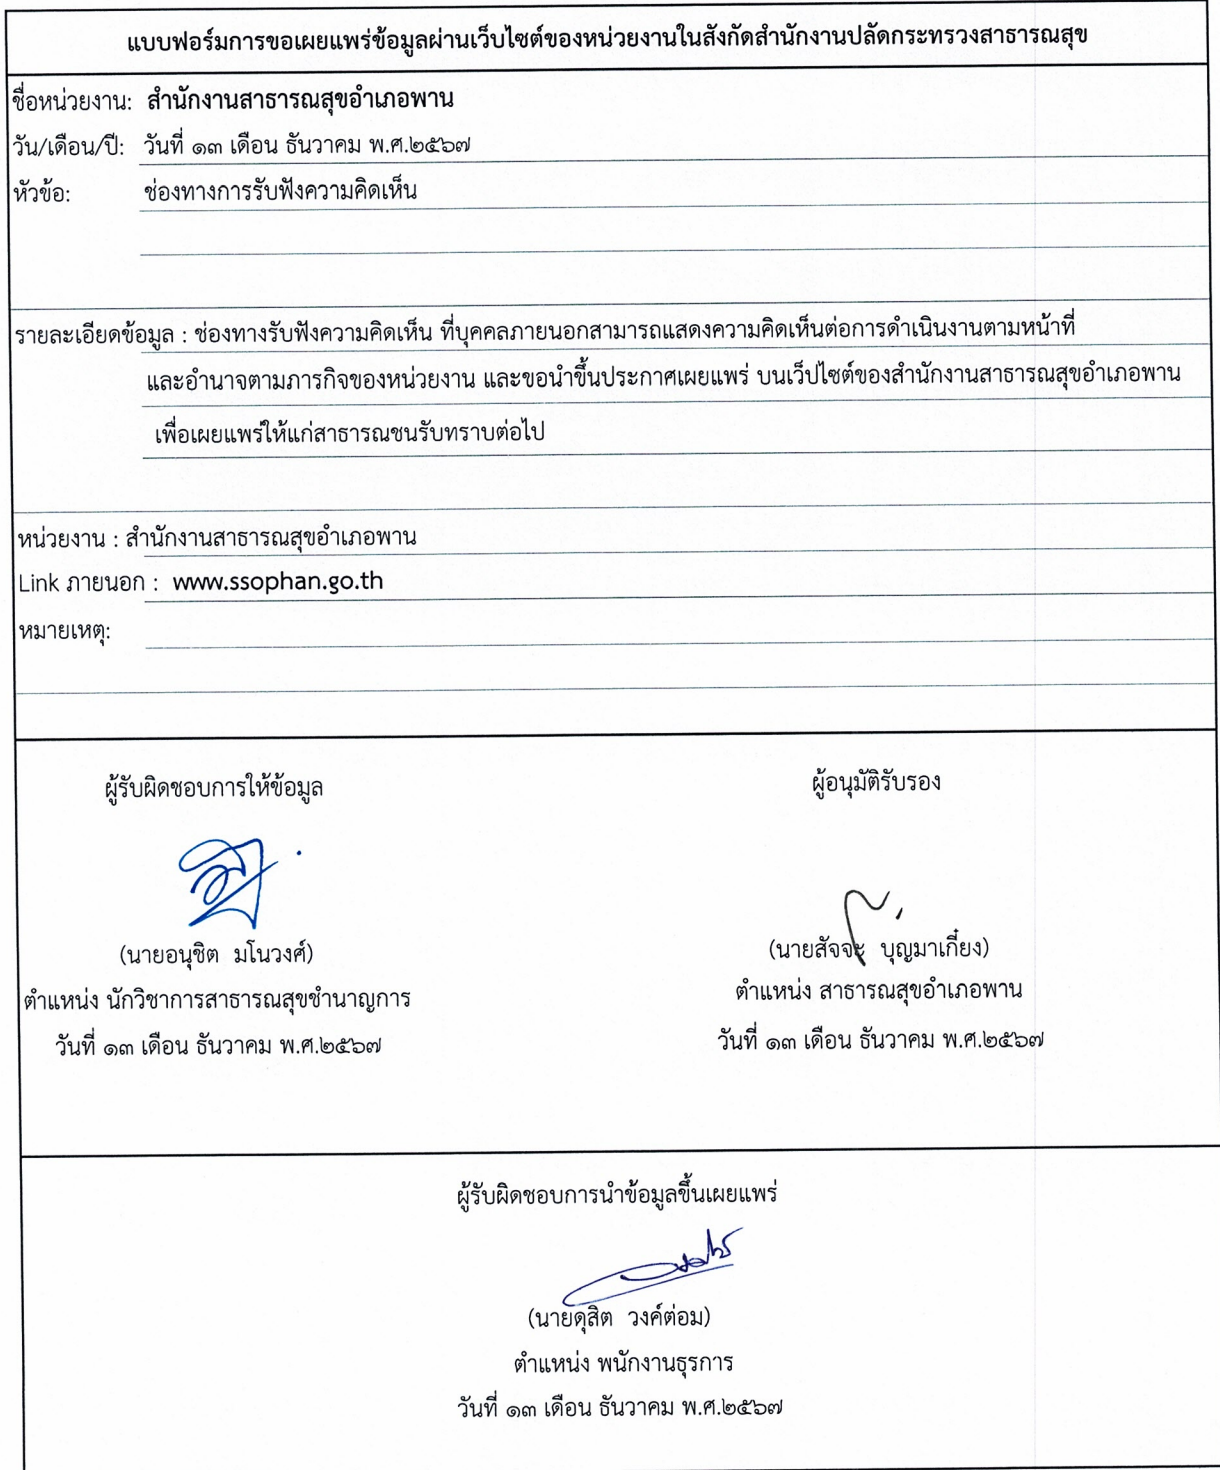 แบบฟอร์มการขอเผยแพร่ข้อมูลผ่านเว็บไซต์ของหน่วยงานในสังกัดสำนักงานปลัดกระทรวงสาธารณสุข
ชื่อหน่วยงาน: สำนักงานสาธารณสุขอำเภอพาน
วัน/เดือน/ปี: วันที่ ๑๓ เดือน ธันวาคม พ.ศ.๒๕๖๗
หัวข้อ: ช่องทางการรับฟังความคิดเห็น
รายละเอียดข้อมูล : ช่องทางรับฟังความคิดเห็น ที่บุคคลภายนอกสามารถแสดงความคิดเห็นต่อการดำเนินงานตามหน้าที่
และอำนาจตามภารกิจของหน่วยงาน และขอนำขึ้นประกาศเผยแพร่ บนเว็ปไซต์ของสำนักงานสาธารณสุขอำเภอพาน
เพื่อเผยแพร่ให้แก่สาธารณชนรับทราบต่อไป
หน่วยงาน : สำนักงานสาธารณสุขอำเภอพาน
Link ภายนอก : www.ssophan.go.th
หมายเหตุ:
ผู้รับผิดชอบการให้ข้อมูล
(นายอนุชิต มโนวงศ์)
ตำแหน่ง นักวิชาการสาธารณสุขชำนาญการ
วันที่ ๑๓ เดือน ธันวาคม พ.ศ.๒๕๖๗
ผู้อนุมัติรับรอง
(นายสัจจะ บุญมาเกี๋ยง)
ตำแหน่ง สาธารณสุขอำเภอพาน
วันที่ ๑๓ เดือน ธันวาคม พ.ศ.๒๕๖๗
ผู้รับผิดชอบการนำข้อมูลขึ้นเผยแพร่
(นายดุสิต วงค์ต่อม)
ตำแหน่ง พนักงานธุรการ
วันที่ ๑๓ เดือน ธันวาคม พ.ศ.๒๕๖๗